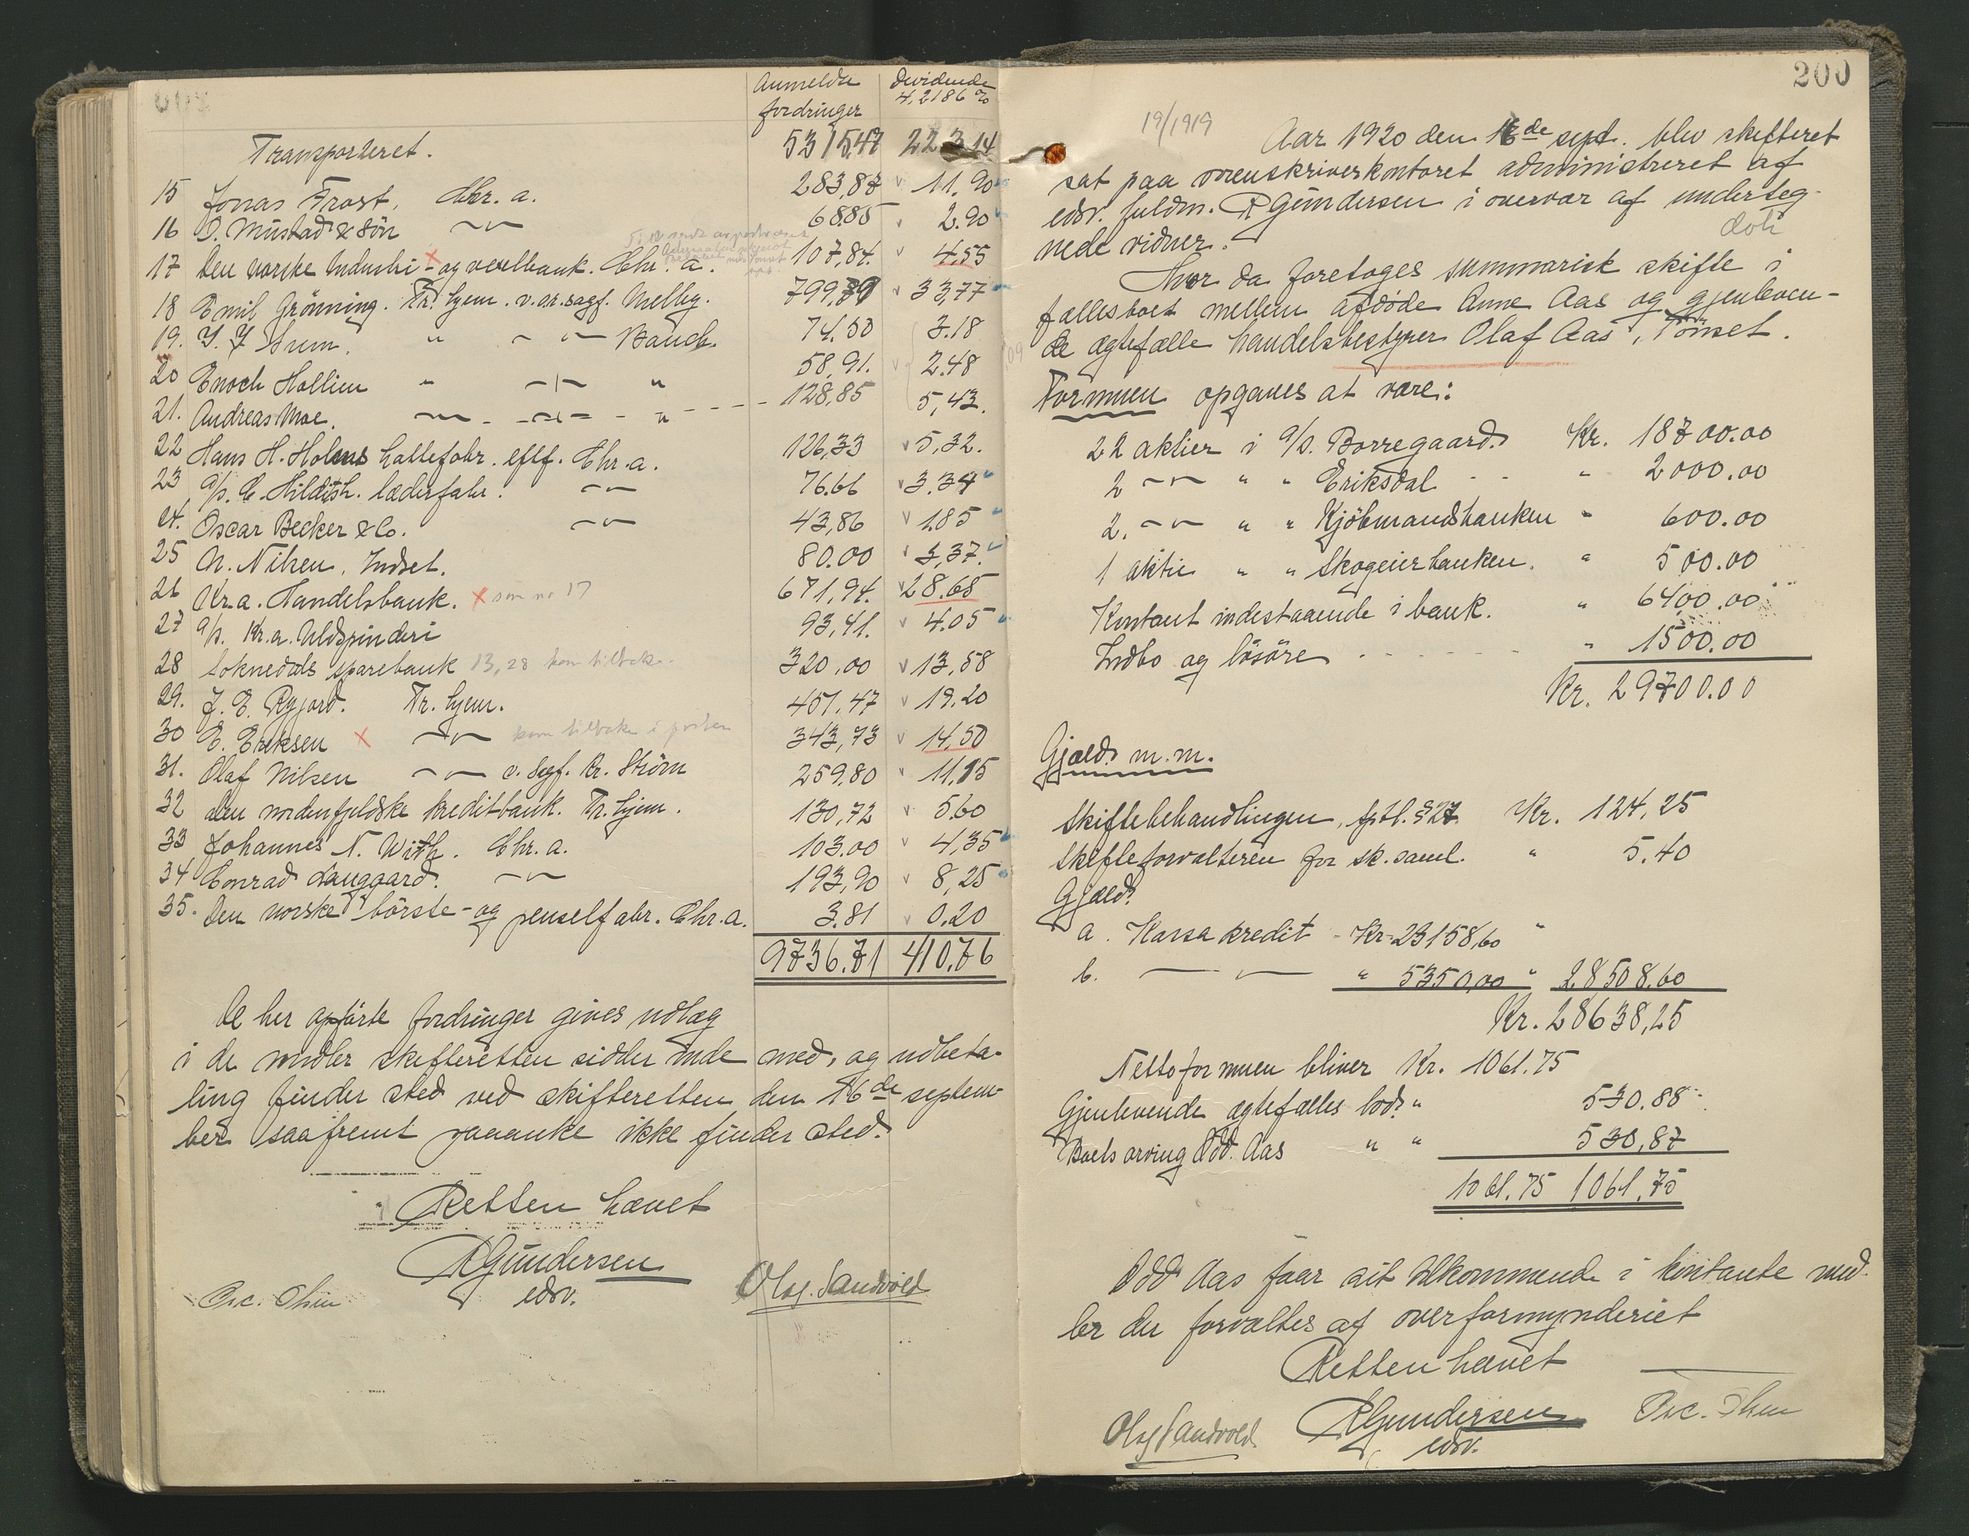 Anmeldte fordringer Dividende 4,2186 %
Transporteret. 5315,47 223.14
15 Jonas Frost, Chr. a. 283,87 11.90
16 O. Mustad & Søn —"— 68.85 2.90
17 Den norske Industri- og vexelbank. Chr. a. 107,84. 4.55
18 Emil Grönning. Tr. hjem. v. or. sagf. Melby. 799,79 33,77
19. I. J. Brun. " — " — Bauck. 74.53 3.18
20 Enoch Hollien " —"— " 58,91. 2.48
21. Andreas Moe. —"— —"— " 128,85 5,43.
22 Hans H. Holms hattefabr. eftf. Chr. a. 126,33 5,32.
23 a/s. C. Hildish. læderfabr. —"— 76.66 3.34
24. Oscar Becker & Co. —"— 43,86 1.85
25 N. Nilsen, Indset. 80.00 3,37.
26 Kr.a. Handelsbank. x som no 17 671,94. 28.65
27 a/s. Kr.a. Uldspinderi 93,41. 4.05
28 Soknedals sparebank 13,28 kom tilbake. 320,00 13,58
29. J. E. Rygjord. Tr. hjem. 451,47 19.20
30 E. Eriksen x —"— kom tilbake i posten 343,73 14,50
31. Olaf Nilsen —"— v. Sagf. Kr. Strøm 259,80 11,15
32 Den nordenfjeldske kreditbank. Tr. hjem. 130,72 5.60
33 Johannes N. With. Chr. a. 103.00 4,35
34 Conrad Langgaard. —"— 193,90 8,25
35. Den norske børste- og penselfabr. Chr. a. 3.81 0.20
9736.71 410,76
De her opførte fordringer gives udlæg
i de midler skifteretten sidder inde med, og udbeta-
ling finder sted ved skifteretten den 16de septem-
ber saafremt paaanke ikke finder sted.
Retten hævet
RGundersen
edsv.
Osc. Thun Olaf. Sandvold
200
19/1919
Aar 1920 den 16de sept. blev skifteret
sat paa sorenskriverkontoret administreret af
edsv. fuldm. RGundersen i overvær af underteg-
nede vidner.
Hvor da foretoges summarisk skifte i
fællesboet mellem afdøde Anne Aas og gjenleven-
de ægtefælle handelsbestyrer Olaf Aas, Tönset.
Formuen opgaves at være:
22 aktier i a/s. Borregaard. Kr. 18700.00
2 —"— " " Eriksdal - - " 2000.00
2. —"— " " Kjöbmandsbanken " 600.00
1 aktie " " Skogeierbanken. " 500.00
Kontant indestaaende i bank. " 6400.00
Indbo og løsøre - - - - " 1500.00
Kr. 29700.00
Gjæld m.m.
Skiftebehandlingen, sptl. § 27. Kr. 124,25
Skifteforvalteren for sk. saml. " 5.40
Gjæld:
a. Kassakredit - Kr. 23158,60 "
b. —"— " 5350,00 " 28508.60
Kr. 28638,25
Nettoformuen bliver Kr. 1061.75
Gjenlevende ægtefælles lod. " 530.88
Boets arving Odd Aas " " 530,87
1061.75 1061,75
Odd Aas faar sit tilkommende i kontante mid-
ler der forvaltes af overformynderiet
Retten hævet
Olaf Sandvold RGundersen Osc. Thun
edsv.